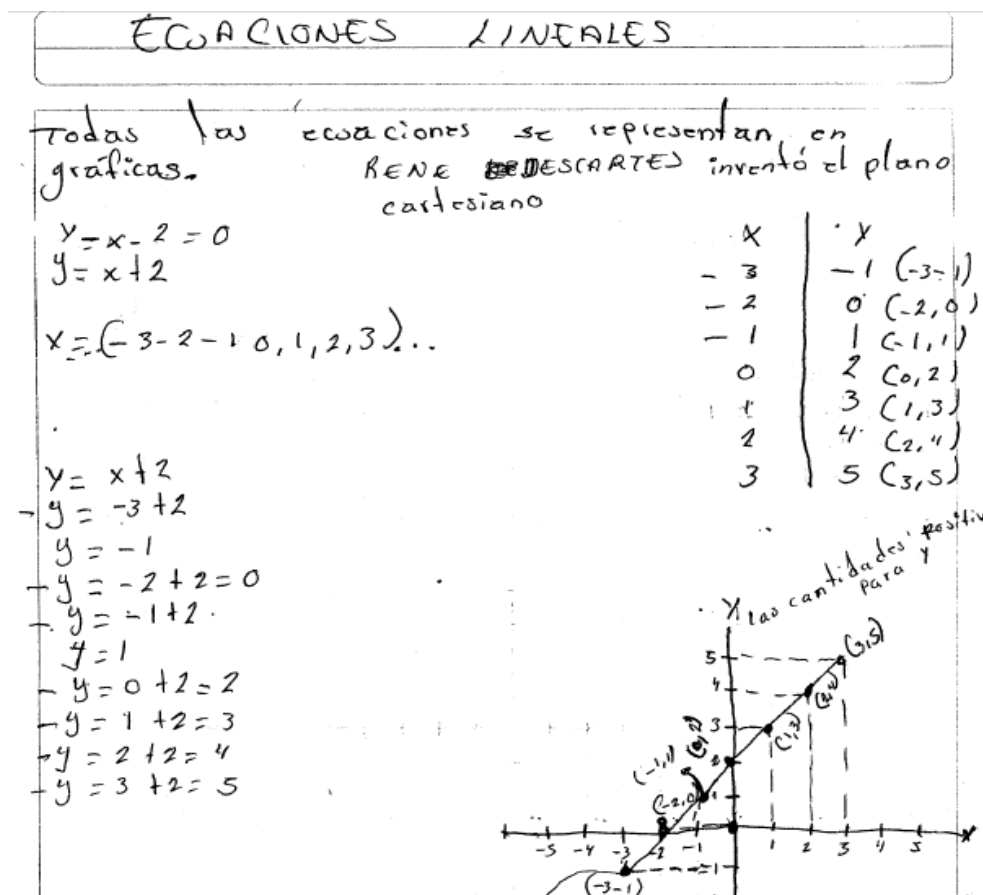 ECUACIONES LINEALES
Todas las ecuaciones se representan en
gráficas. RENE DESCARTES inventó el plano
cartesiano
Y=x-2=0
y=x+2
x=(-3-2-1 0,1,2,3)...
X Y
-3 -1 (-3-1)
-2 0 (-2,0)
-1 1 (-1,1)
0 2 (0,2)
1 3 (1,3)
2 4 (2,4)
3 5 (3,5)
Y= x+2
- y = -3+2
y = -1
- y = -2+2=0
- y = -1+2
y=1
- y=0+2=2
- y=1+2=3
- y=2+2=4
- y=3+2=5
las cantidades
para y
Y
(3,5)
5
4
(2,4)
3
(1,3)
(0,2)
2
(-1,1)
1
(-2,0)
-5 -4 -3 -2 -1 1 2 3 4 5 X
-1
(-3-1)